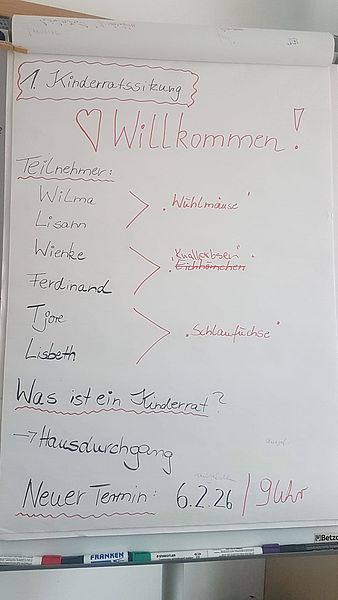 1. Kinderratssitzung
Willkommen!
Teilnehmer:
Wilma
Lisann
„Wühlmäuse“
Wienke
Ferdinand
„Knallerbsen“
Eichhörnchen
Tjore
Lisbeth
„Schlaufüchse“
Was ist ein Kinderrat?
→ Hausdurchgang
Neuer Termin: 6.2.26 / 9 Uhr
FRANKEN
STAEDTLER